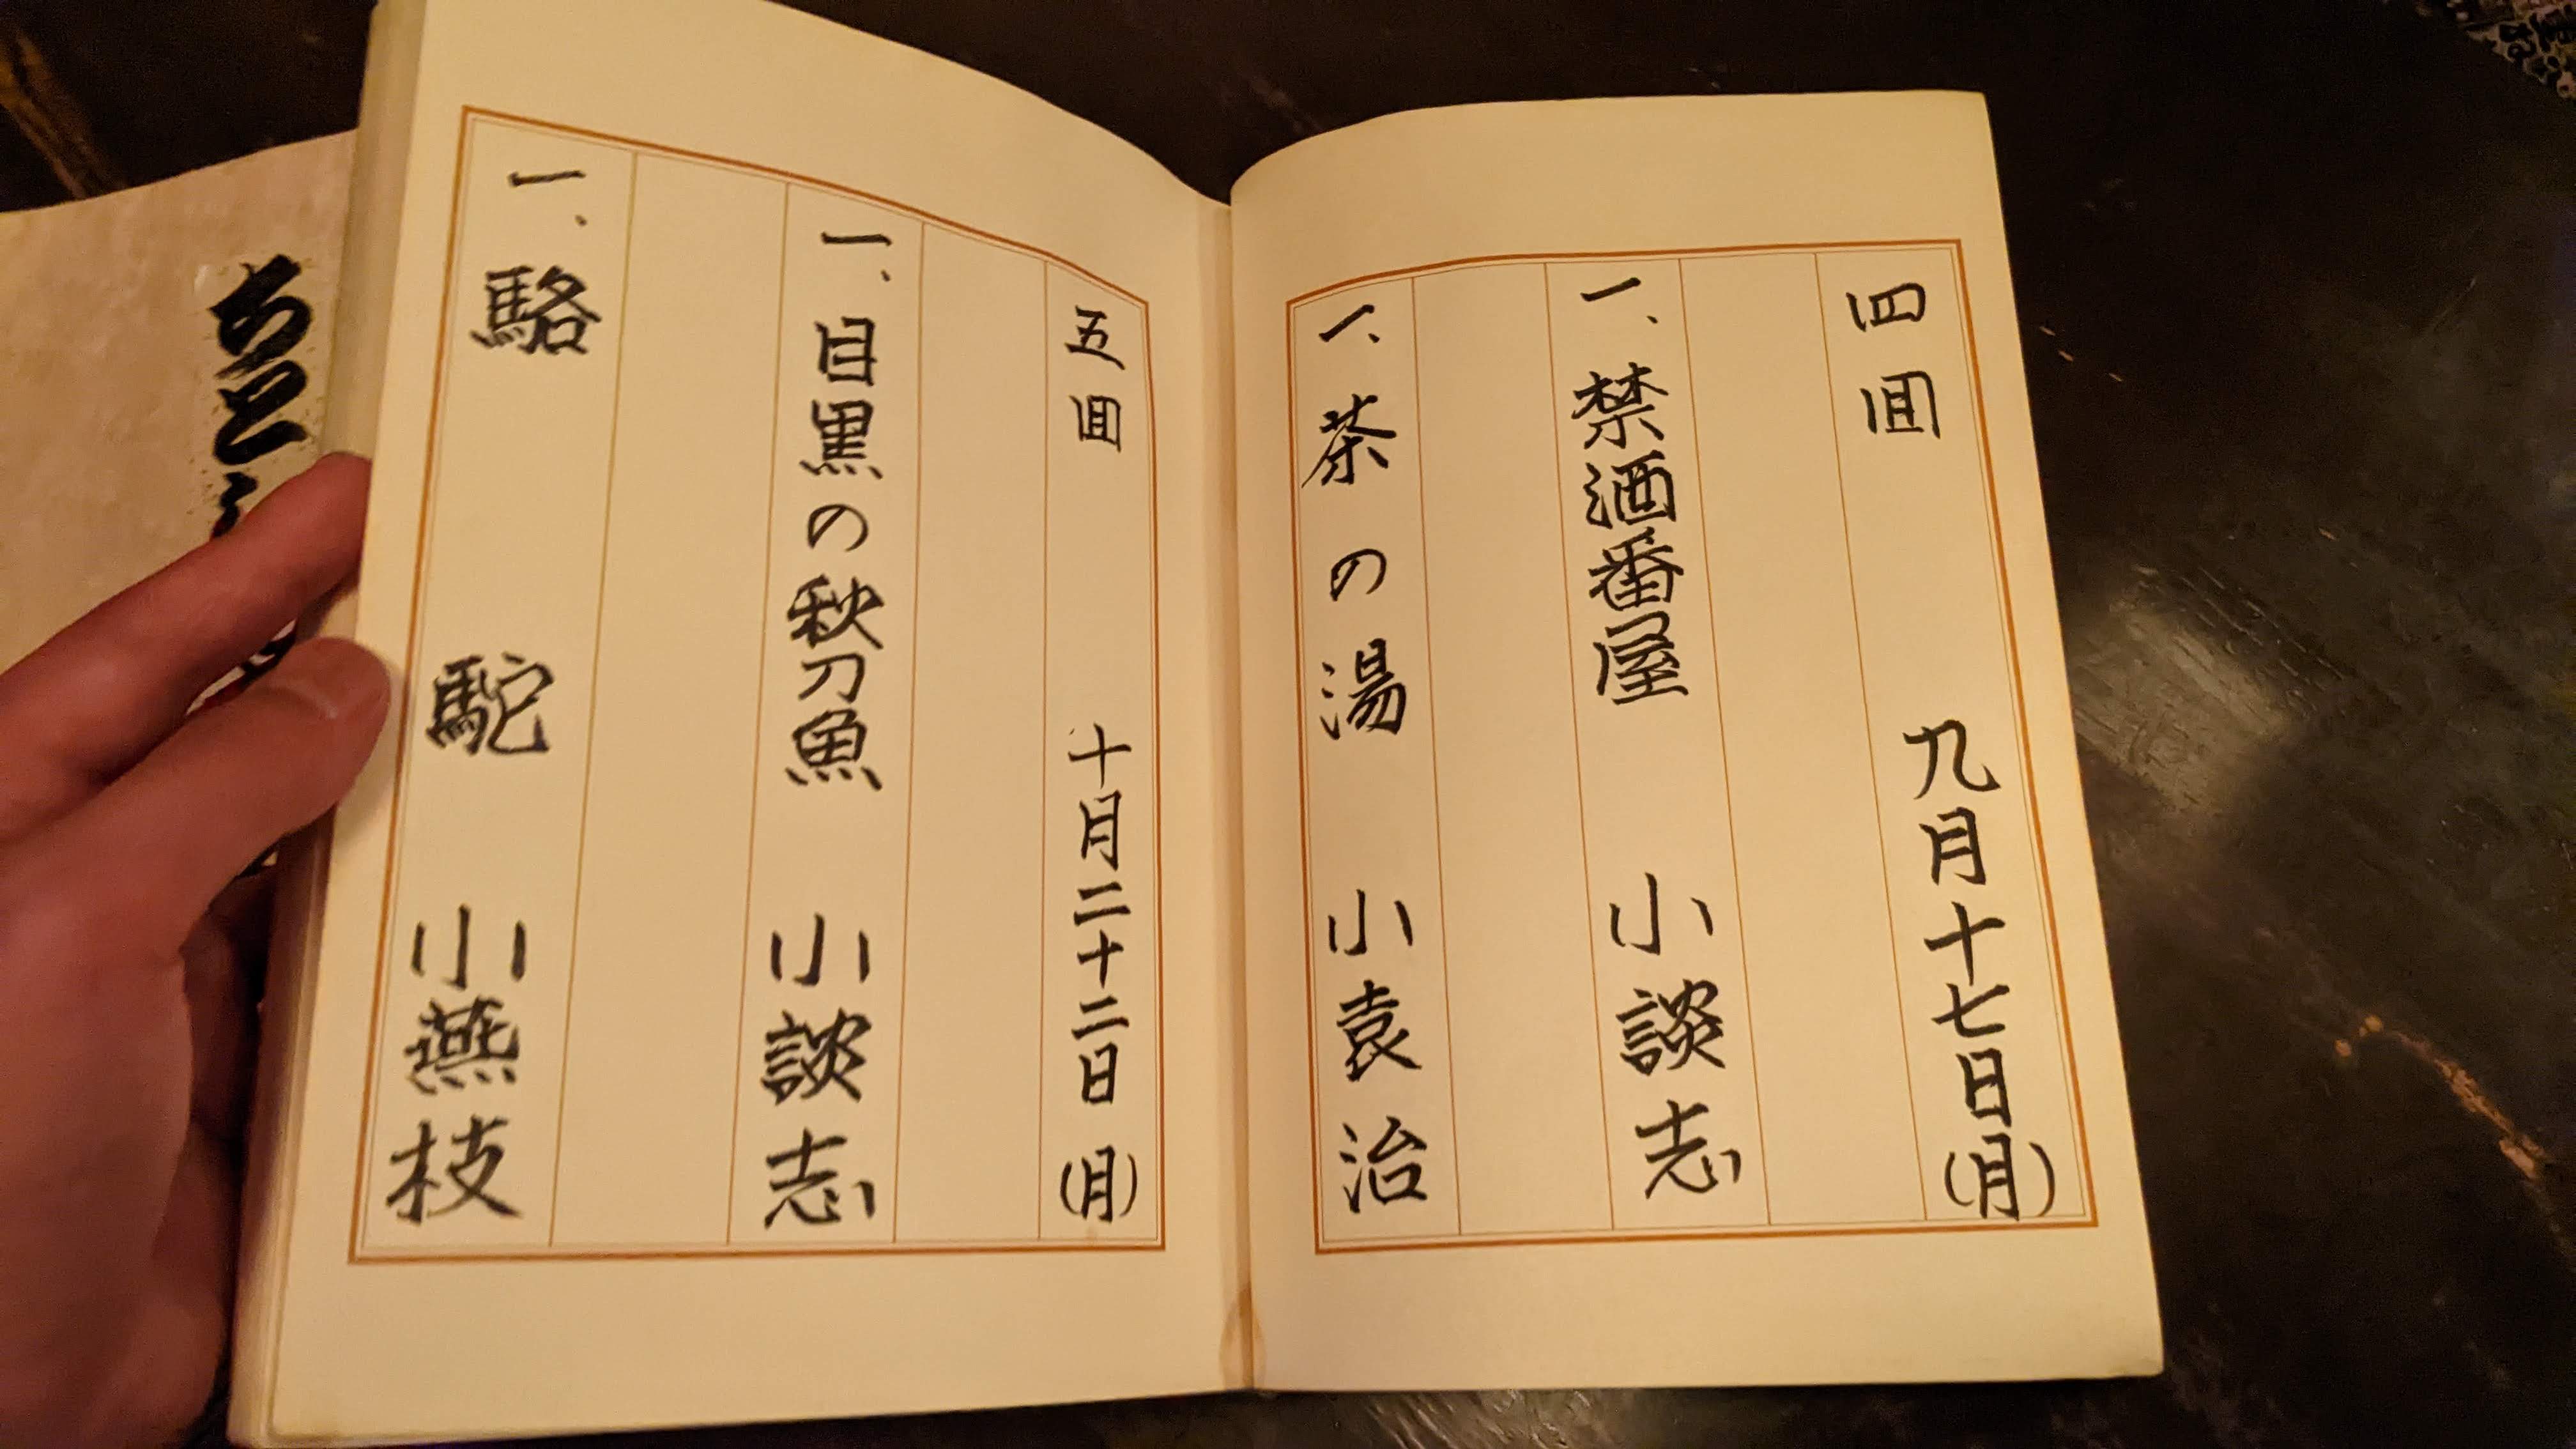 四回 九月十七日(月)
一、禁酒番屋 小談志
一、茶の湯 小袁治
五回 十月二十二日(月)
一、目黒の秋刀魚 小談志
一、駱駝 小燕枝